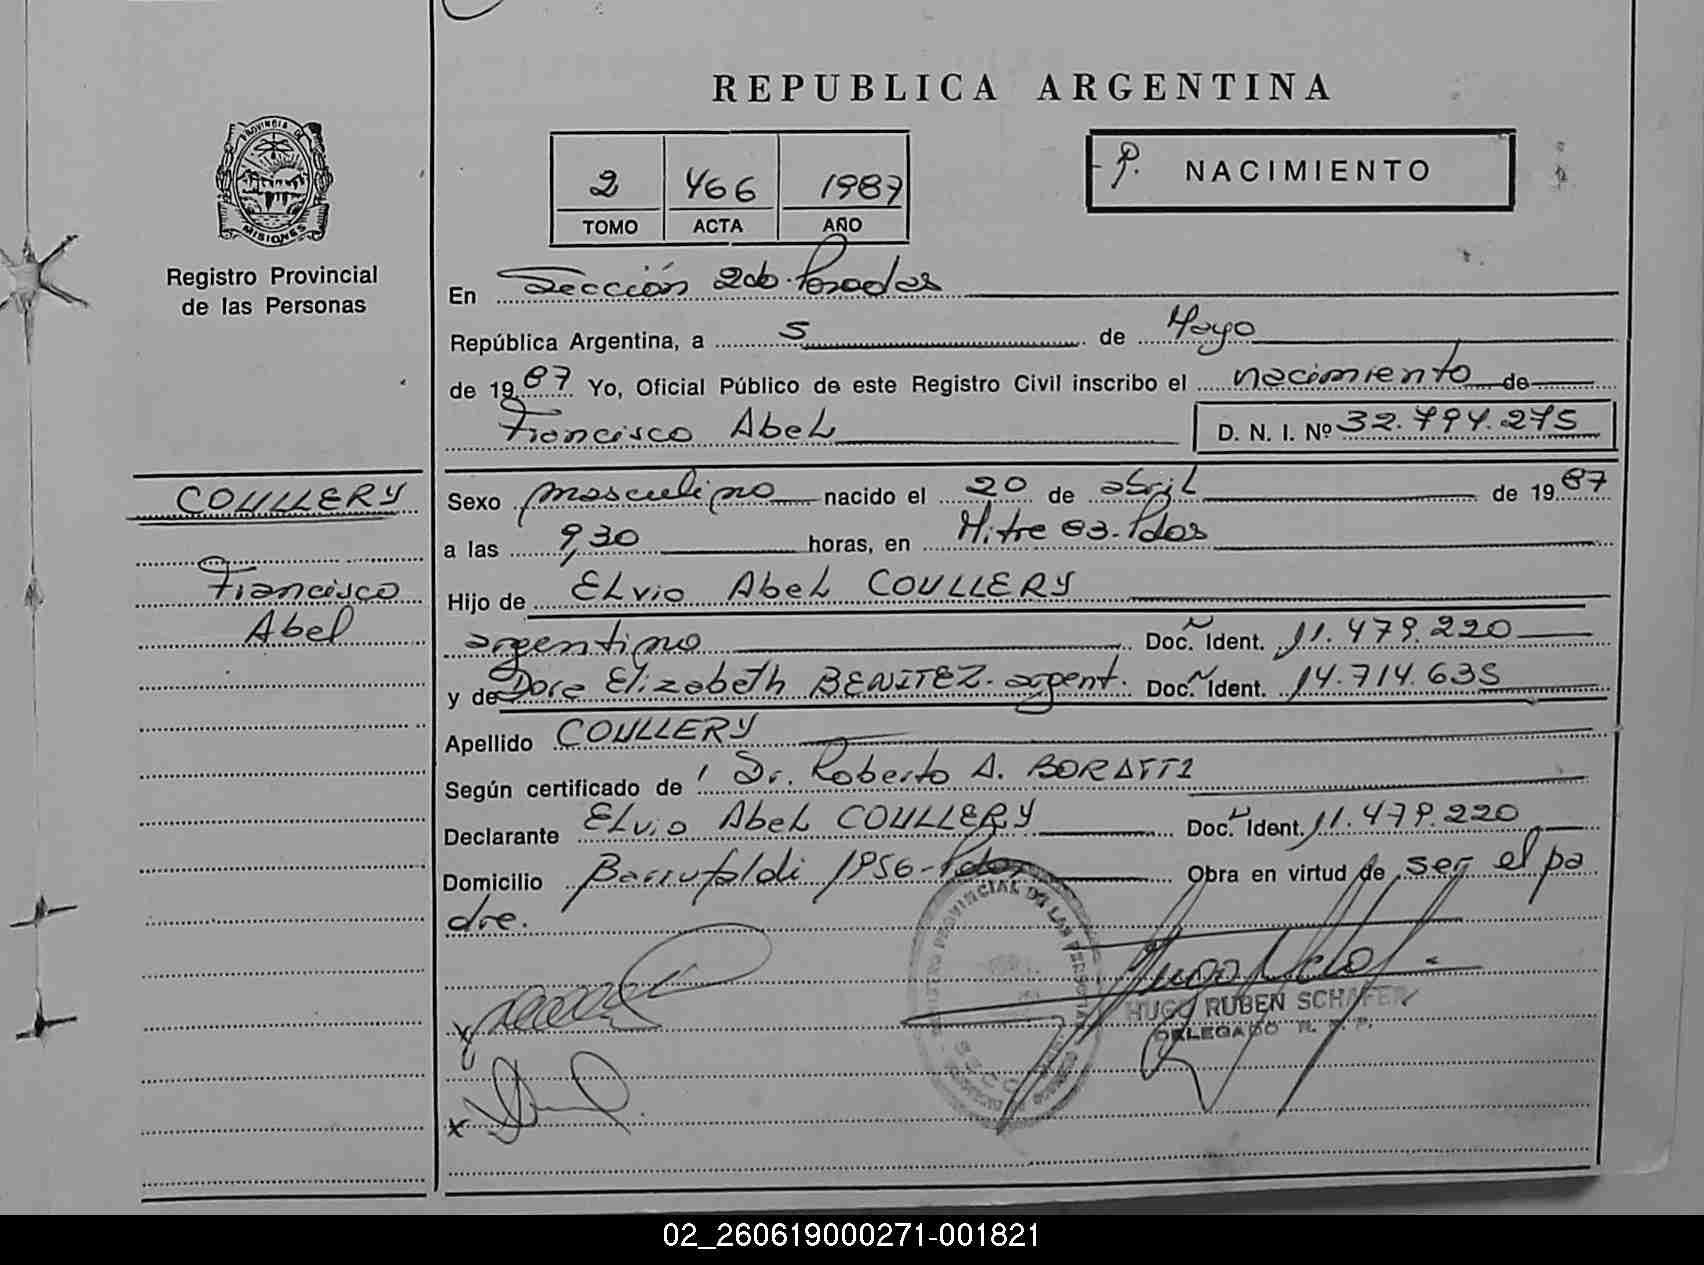 REPUBLICA ARGENTINA
PROVINCIA DE
MISIONES
Registro Provincial
de las Personas
2 466 1987
TOMO ACTA AÑO
P. NACIMIENTO
En Sección 2da. Posadas
República Argentina, a 5 de Mayo
de 1987 Yo, Oficial Público de este Registro Civil inscribo el nacimiento de
Francisco Abel D. N. I. Nº 32.794.275
COULLERY
Francisco
Abel
Sexo masculino nacido el 20 de abril de 1987
a las 9,30 horas, en Mitre 83. Pdas
Hijo de Elvio Abel COULLERY
argentino Doc. Ident. 11.479.220
y de Dora Elizabeth BENITEZ. argent. Doc. Ident. 14.714.635
Apellido COULLERY
Según certificado de Dr. Roberto A. BORATTI
Declarante Elvio Abel COULLERY Doc. Ident. 11.479.220
Domicilio Barrufaldi 1956- Pdas Obra en virtud de ser el pa
dre.
REGISTRO PROVINCIAL DE LAS PERSONAS
HUGO RUBEN SCHAFER
DELEGADO R. P. P.
02_260619000271-001821